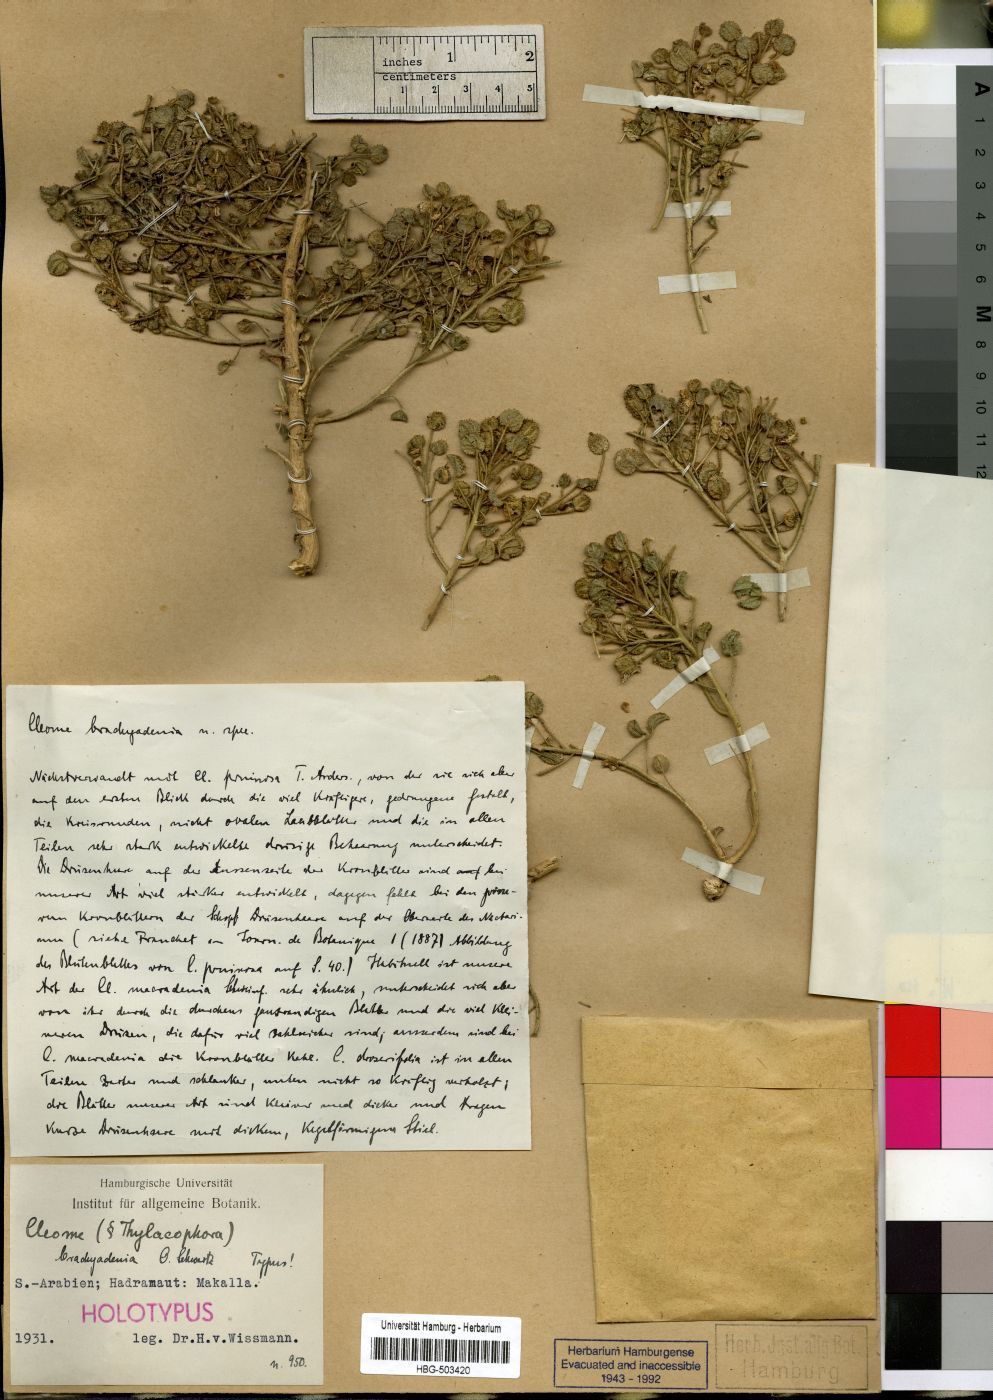 inches 1 2
centimeters
1 2 3 4 5
A
1
2
3
4
5
6
M
8
9
10
11
12
13
Cleome brachyadenia n. spec.
Nächstverwandt mit Cl. pruinosa T. Anders., von der sie sich aber
auf den ersten Blick durch die viel kräftigere, gedrungene Gestalt,
die kreisrunden, nicht ovalen Laubblätter und die in allen
Teilen sehr stark entwickelte drüsige Behaarung unterscheidet.
Die Drüsenhaare auf der Aussenseite der Kronblätter sind auf bei
unserer Art viel stärker entwickelt, dagegen fehlt bei den grösse-
ren Kronblättern der Schopf Drüsenhaare auf der Oberseite des Nectari-
ums (siehe Franchet in Journ. de Botanique 1 (1887) Abbildung
des Blütenblattes von C. pruinosa auf S. 40.) Habituell ist unsere
Art der Cl. macradenia Schweinf. sehr ähnlich, unterscheidet sich aber
von ihr durch die durchaus ganzrandigen Blätter und die viel klei-
neren Drüsen, die dafür viel zahlreicher sind; ausserdem sind bei
C. macradenia die Kronblätter kahl. C. droserifolia ist in allen
Teilen zarter und schlanker, unten nicht so kräftig verholzt;
die Blätter unserer Art sind kleiner und dicker und tragen
kurze Drüsenhaare mit dickem, kegelförmigem Stiel.
Hamburgische Universität
Institut für allgemeine Botanik.
Cleome (§ Thylacophora)
brachyadenia O. Schwartz Typus!
S.-Arabien; Hadramaut: Makalla.
HOLOTYPUS
1931. leg. Dr.H.v.Wissmann.
n. 950.
Universität Hamburg - Herbarium
HBG-503420
Herbarium Hamburgense
Evacuated and inaccessible
1943 - 1992
Herb. Inst. allg. Bot.
Hamburg